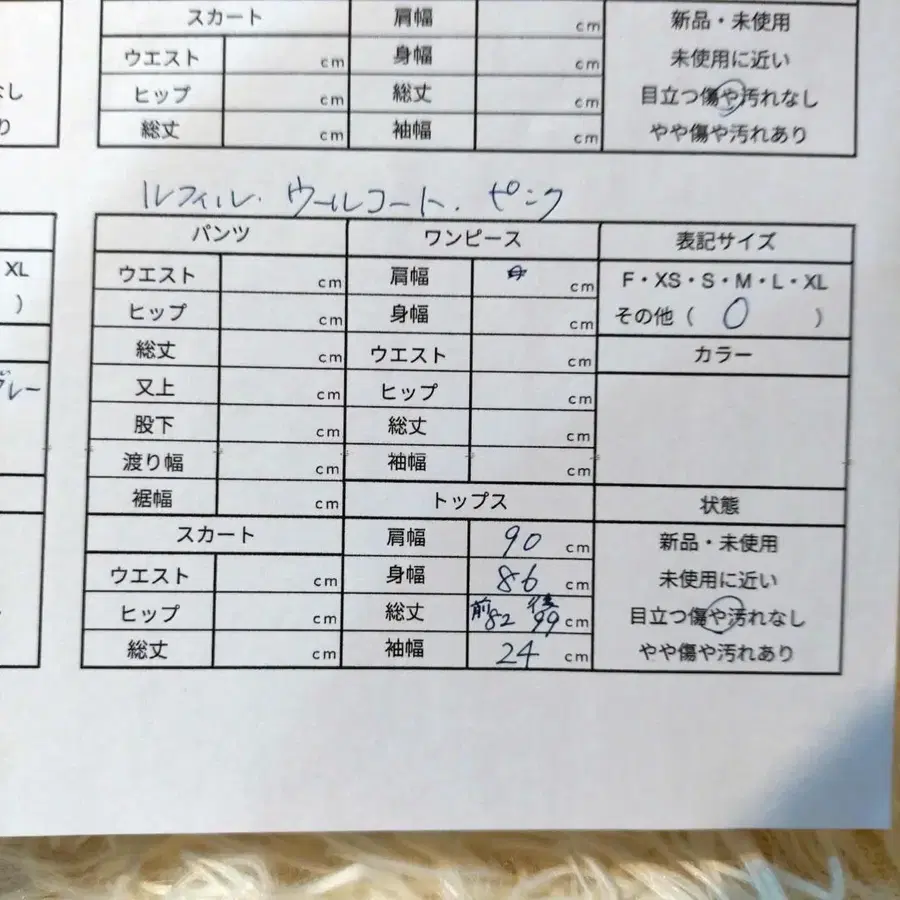 スカート 肩幅 cm 新品・未使用
ウエスト cm 身幅 cm 未使用に近い
ヒップ cm 総丈 cm 目立つ傷や汚れなし
総丈 cm 袖幅 cm やや傷や汚れあり
ルフィル. ウールコート. ピンク
パンツ ワンピース 表記サイズ
XL ウエスト cm 肩幅 cm F・XS・S・M・L・XL
) ヒップ cm 身幅 cm その他 ( 0 )
総丈 cm ウエスト cm カラー
グレー 又上 cm ヒップ cm
股下 cm 総丈 cm
渡り幅 cm 袖幅 cm
裾幅 cm トップス 状態
スカート 肩幅 90 cm 新品・未使用
ウエスト cm 身幅 86 cm 未使用に近い
ヒップ cm 総丈 前82 後99 cm 目立つ傷や汚れなし
総丈 cm 袖幅 24 cm やや傷や汚れあり